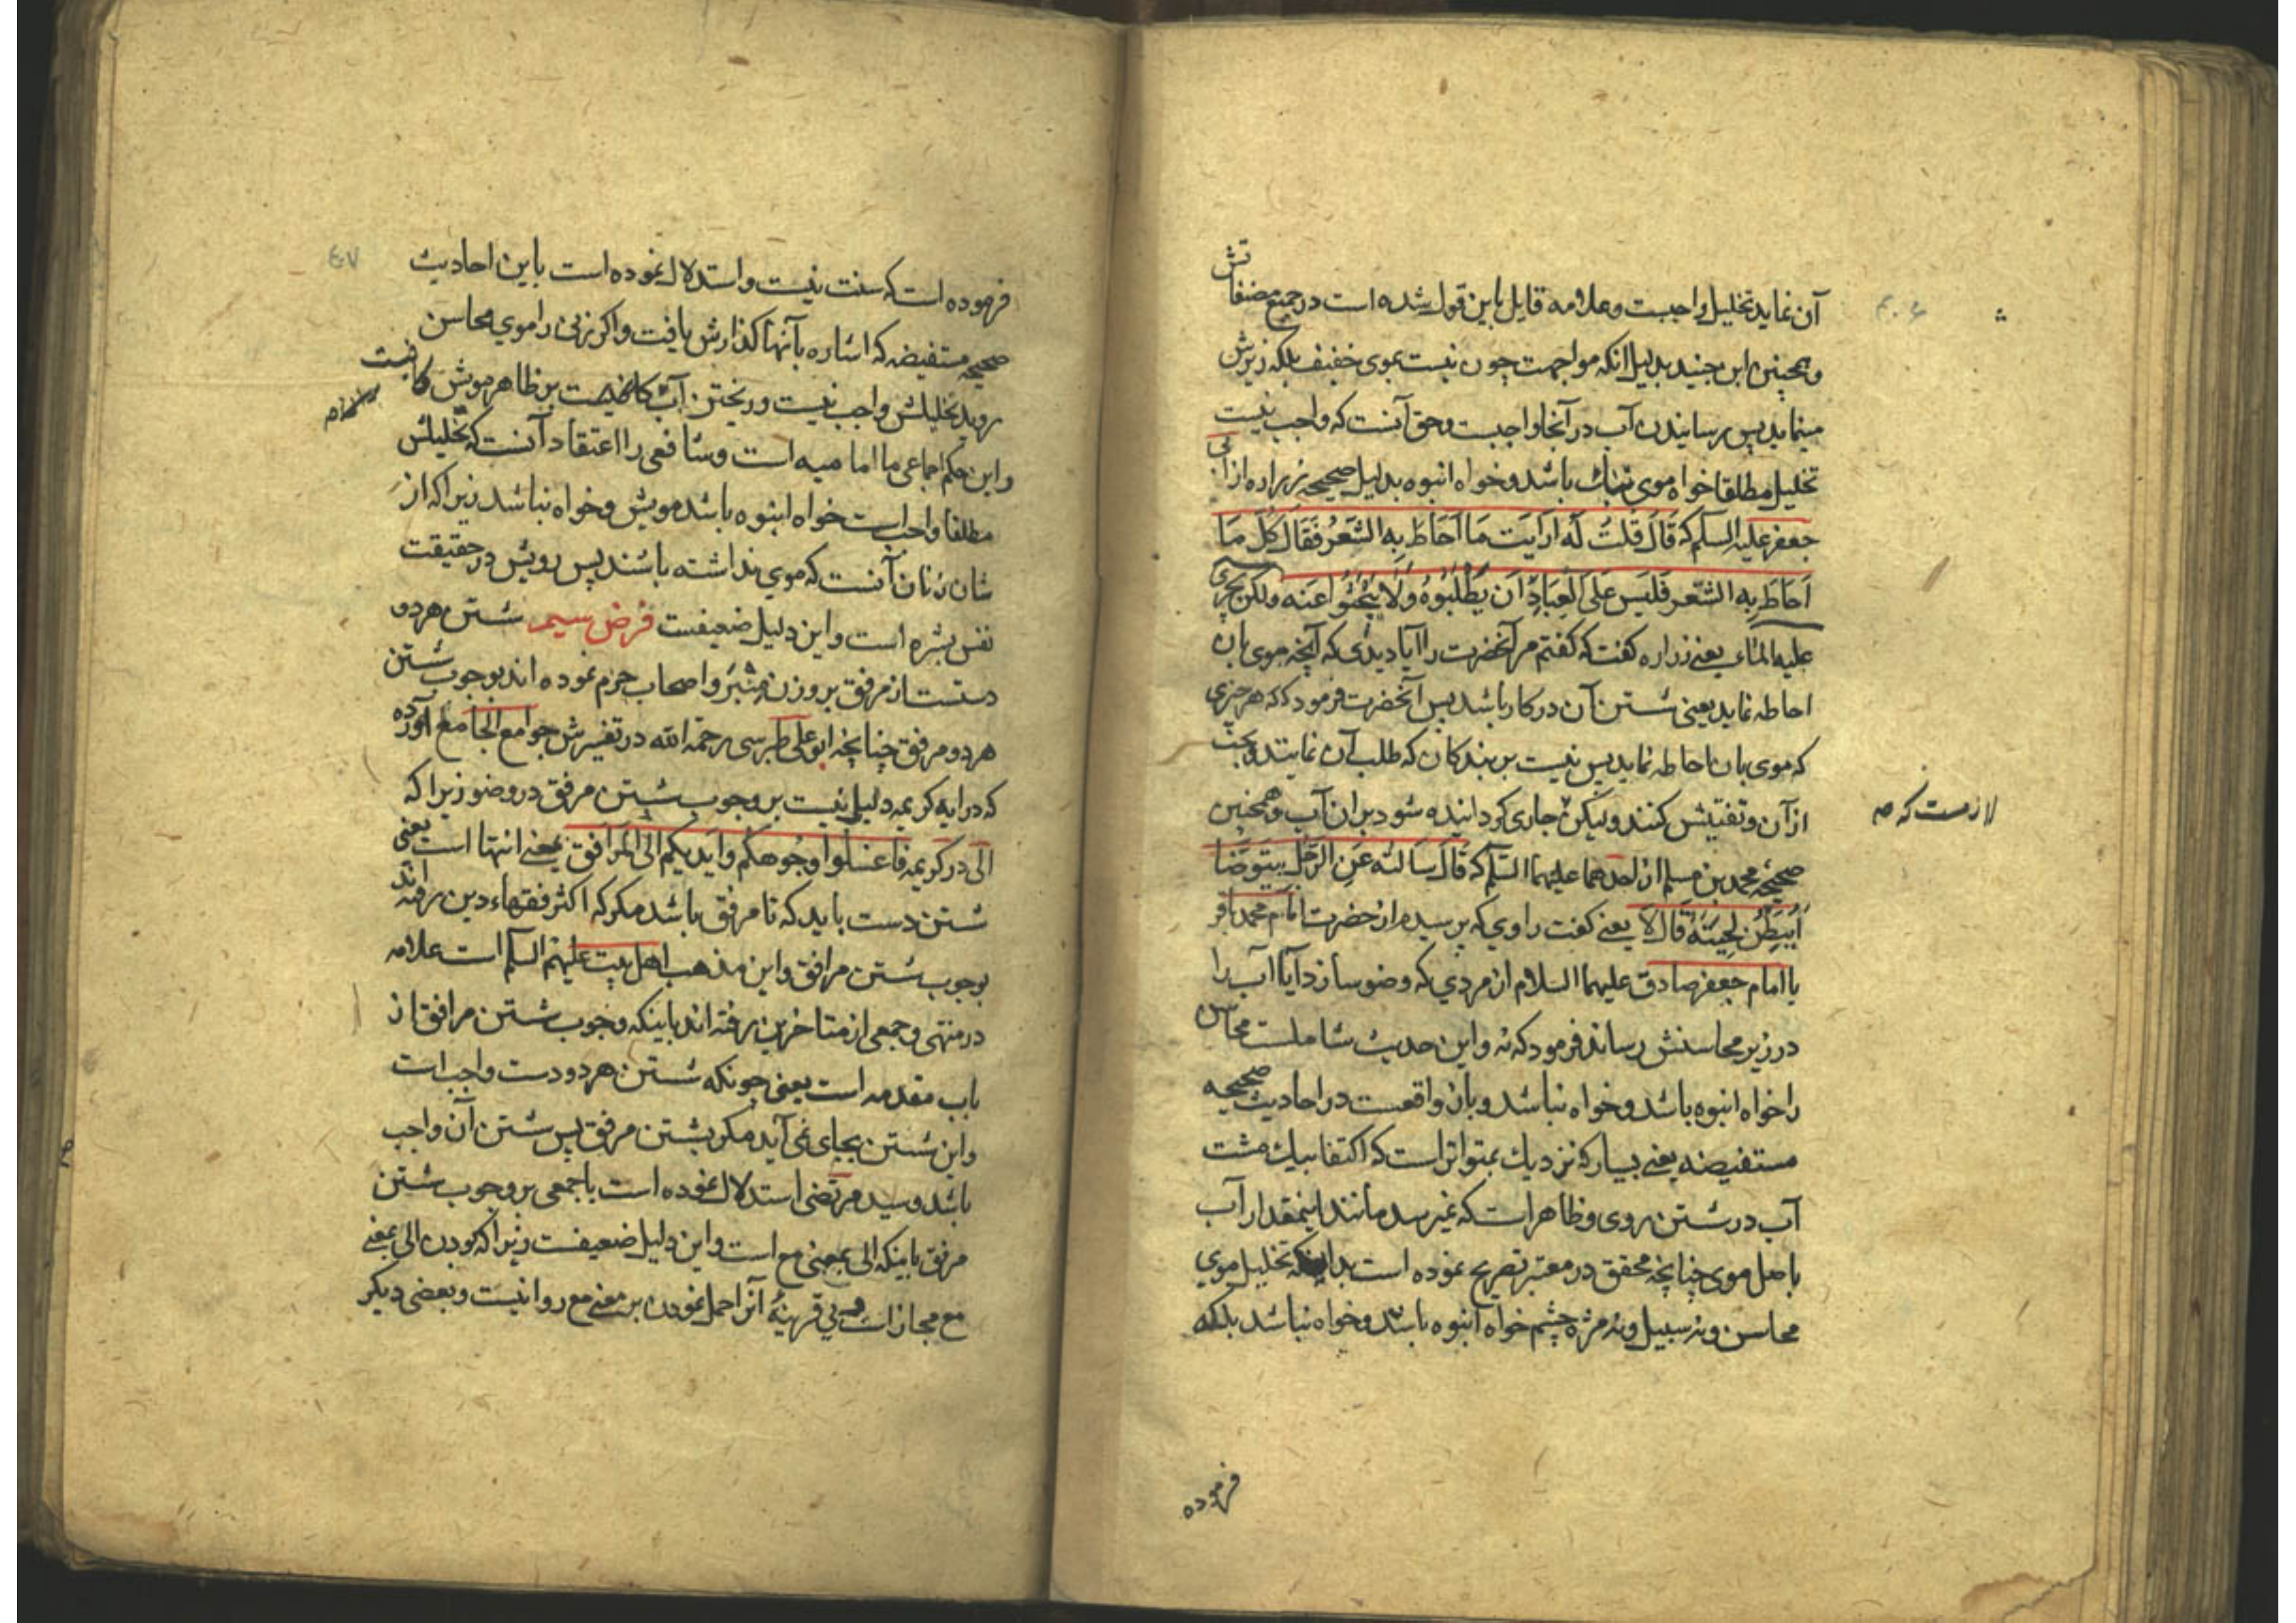 آن نماید تخلیل واجبست وعلامه قایل باین قول شده است در جمیع مصنفاتش
وهمچنین ابن جنید بدلیل انکه مواجهت چون نیست بموی خفیف بلکه زیرش
مینماید پس رسانیدن آب در آنجا واجبست وحق آنست که واجب نیست
تخلیل مطلقا خواه موی تنک باشد وخواه انبوه بدلیل صحیحه زراره از ابی
جعفر علیه السلم که قَالَ قلتُ لَه اَرَاَیتَ مَا اَحَاطَ بِهِ الشَعَرُ فَقَالَ کُلّ مَا
اَحَاطَ بِهِ الشّعَر فَلَیسَ عَلَی العِبَادِ اَن یَطلُبُوهُ وَلَا یَبحَثُوا عَنه ولکن یجری
علیه المَاء یعنی زراره کفت که کفتم مر آنحضرت را آیا دیدی که آنچه موی بان
احاطه نماید یعنی شستن آن در کار باشد پس آنحضرت فرمود که هر چیزی
که موی بان احاطه نماید پس نیست بر بندکان که طلب آن نمایند وبحث
از آن وتفتیش کنند ولیکن جاری کردانیده شود بران آب وهمچنین
لازمست که صه
صحیحهٔ محمد بن مسلم از احدهما علیهما السّلم که قَالَ سَالتُه عَنِ الرَّجُل یَتَوضّا
اَیُبَطِّن لِحیَتَهُ قَالَ لَا یعنی کفت راوی که پرسیدم از حضرت امام محمد باقر
یا امام جعفر صادق علیهما السلام از مردی که وضو سازد آیا آب را
در زیر محاسنش رساند فرمود که نه واین حدیث شاملست محاسن
را خواه انبوه باشد وخواه نباشد وبان واقعست در احادیث صحیحه
مستفیضه یعنی بسیار که نزدیك بمتواتر است که اکتفا بیك مشت
آب در شستن روی وظاهر است که نمیرسد مانند اینمقدار آب
باصل موی چنانچه محقق در معتبر تصریح نموده است بدانکه تخلیل موی
محاسن ونه سبیل ونه مژه چشم خواه انبوه باشد وخواه نباشد بلکه
فرموده
فرموده است که سنت نیست واستدلال نموده است باین احادیث
صحیحه مستفیضه که اشاره بآنها کذارش یافت واکر زنی را موی محاسن
روید تخلیلش واجب نیست وریختن آب بر ظاهر مویش کافیست
واین حکم اجماعی ما امامیه است وشافعی را اعتقاد آنست که تخلیلش
مطلقا واجبست خواه انبوه باشد مویش وخواه نباشد زیرا که از
شان زنان آنست که موی نداشته باشند پس رویش در حقیقت
نفس بشره است واین دلیل ضعیفست فرض سیم شستن هر دو
دستست از مرفق بر وزن منبر واصحاب جزم نموده اند بوجوب شستن
هر دو مرفق چنانچه ابو علی طبرسی رحمه الله در تفسیرش جوامع الجامع آورده
که در ایه کریمه دلیل نیست بر وجوب شستن مرفق در وضو زیرا که
الی در کریمه فاغسلوا وجُوهکم وایدیکم الی المرافق بمعنی انتها است یعنی
شستن دست باید که تا مرفق باشد مکر که اکثر فقهاء دین رفته اند
بوجوب شستن مرافق واین مذهب اهل بیت علیهم السلم است علامه
در منتهی وجمعی از متاخرین رفته اند باینکه وجوب شستن مرافق از
باب مقدمه است یعنی چونکه شستن هر دو دست واجب است
واین شستن بجای نمی آید مکر بشستن مرفق پس شستن آن واجب
باشد وسید مرتضی استدلال نموده است باجمعی بر وجوب شستن
مرفق باینکه الی بمعنی مع است واین دلیل ضعیفست زیرا که بودن الی بمعنی
مع مجاز است وبی قرینهٔ آنرا حمل نمودن بر معنی مع روا نیست وبعضی دیکر